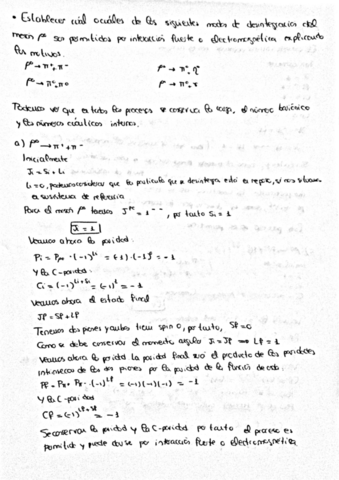 • Establecer cuál o cuáles de los siguientes modos de desintegración del
mesón ρ⁰ son permitidos por interacción fuerte o electromagnética explicando
los motivos.
ρ⁰ → π⁺, π⁻ ρ⁰ → π⁰, η⁰
ρ⁰ → π⁰, π⁰ ρ⁰ → π⁰, γ
Podemos ver que en todos los procesos se conserva la carga, el número bariónico
y los números cuánticos internos.
a) ρ⁰ → π⁺ + π⁻
Inicialmente
Ji = Si + Li
Li = 0, podemos considerar que la partícula que se desintegra está en reposo, si nos situamos
en su sistema de referencia
Para el mesón ρ⁰ tenemos J^PC = 1⁻⁻, por tanto Si = 1
Ji = 1
Veamos ahora la paridad:
Pi = Pρ⁰ · (-1)^Li = (-1) · (-1)⁰ = -1
Y la C-paridad:
Ci = (-1)^Li+Si = (-1)¹ = -1
Veamos ahora el estado final
Jf = Sf + Lf
Tenemos dos piones y ambos tienen spin 0, por tanto, Sf = 0
Como se debe conservar el momento angular Ji = Jf ⟹ Lf = 1
Veamos ahora la paridad. La paridad final será el producto de las paridades
intrínsecas de los dos piones por la paridad de la función de onda.
Pf = Pπ · Pπ · (-1)^Lf = (-1)(-1)(-1) = -1
Y la C-paridad
Cf = (-1)^Lf+Sf = -1
Se conservan la paridad y la C-paridad por tanto el proceso es
permitido y puede darse por interacción fuerte o electromagnética